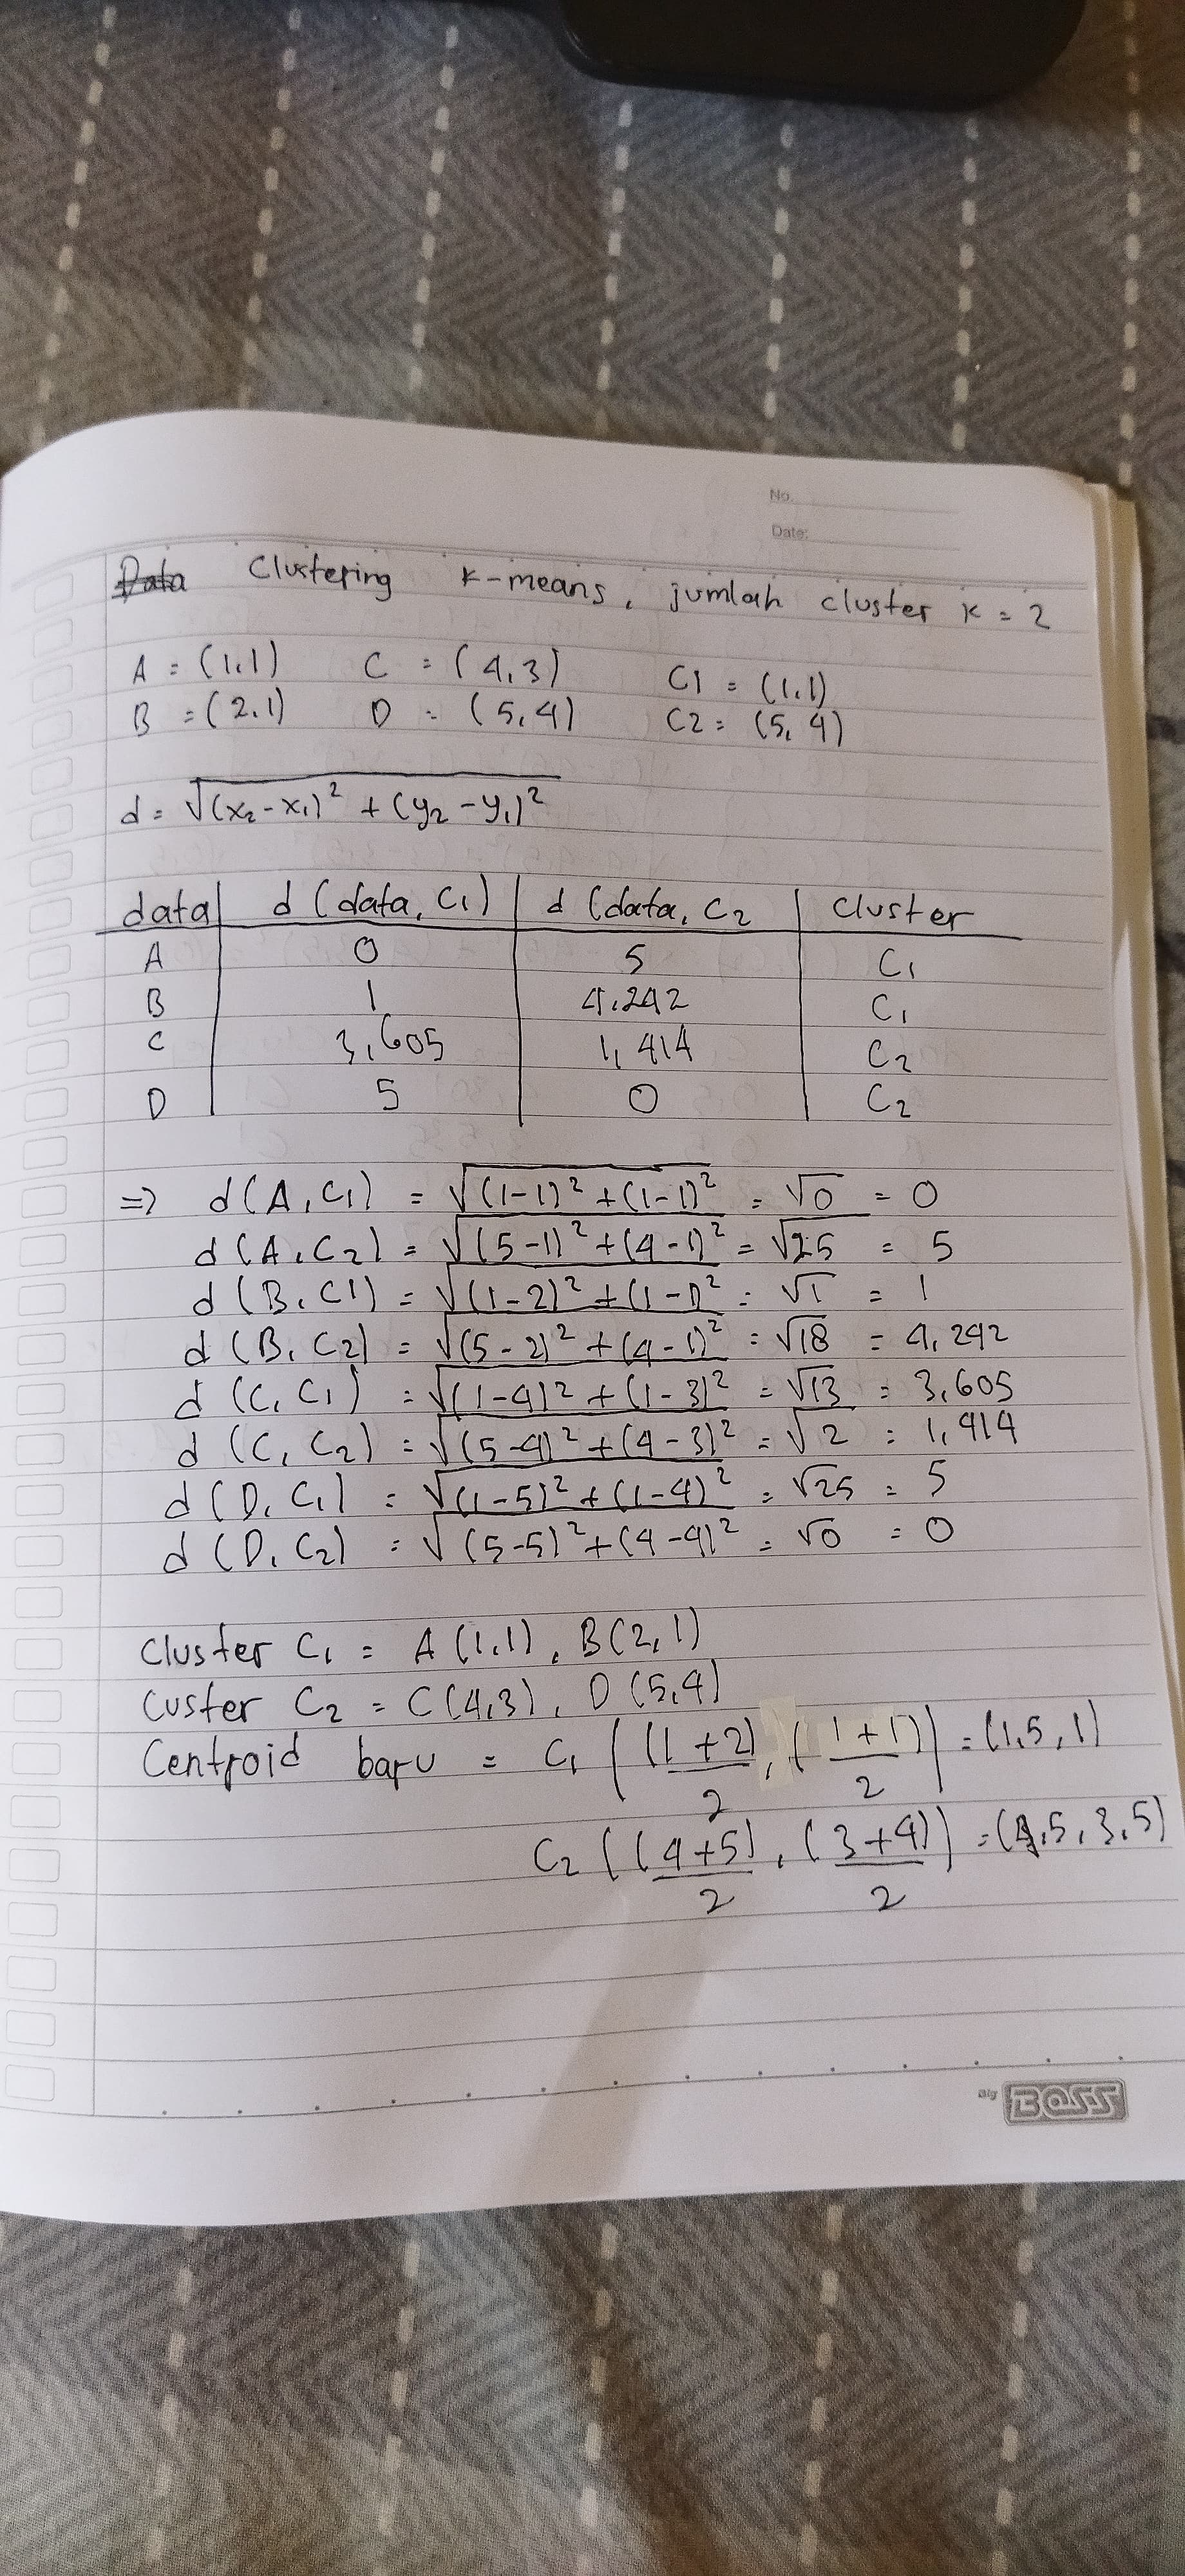 No.
Date:
Data Clustering k-means, jumlah cluster k = 2
A = (1,1) C = (4,3) C1 = (1,1)
B = (2,1) D = (5,4) C2 = (5,4)
d = √(x₂-x₁)² + (y₂-y₁)²
data d (data, C₁) d (data, C₂ Cluster
A 0 5 C₁
B 1 4,242 C₁
C 3,605 1,414 C₂
D 5 0 C₂
=> d(A,C1) = √(1-1)² + (1-1)² = √0 = 0
d(A,C2) = √(5-1)² + (4-1)² = √25 = 5
d(B,C1) = √(1-2)² + (1-1)² = √1 = 1
d(B,C2) = √(5-2)² + (4-1)² = √18 = 4,242
d(C,C1) = √(1-4)² + (1-3)² = √13 = 3,605
d(C,C2) = √(5-4)² + (4-3)² = √2 = 1,414
d(D,C1) = √(1-5)² + (1-4)² = √25 = 5
d(D,C2) = √(5-5)² + (4-4)² = √0 = 0
Cluster C₁ = A(1,1), B(2,1)
Custer C₂ = C(4,3), D(5,4)
Centroid baru = C₁ ((1+2)/2, (1+1)/2) = (1,5, 1)
C₂ ((4+5)/2, (3+4)/2) = (4,5, 3,5)
Big BOSS